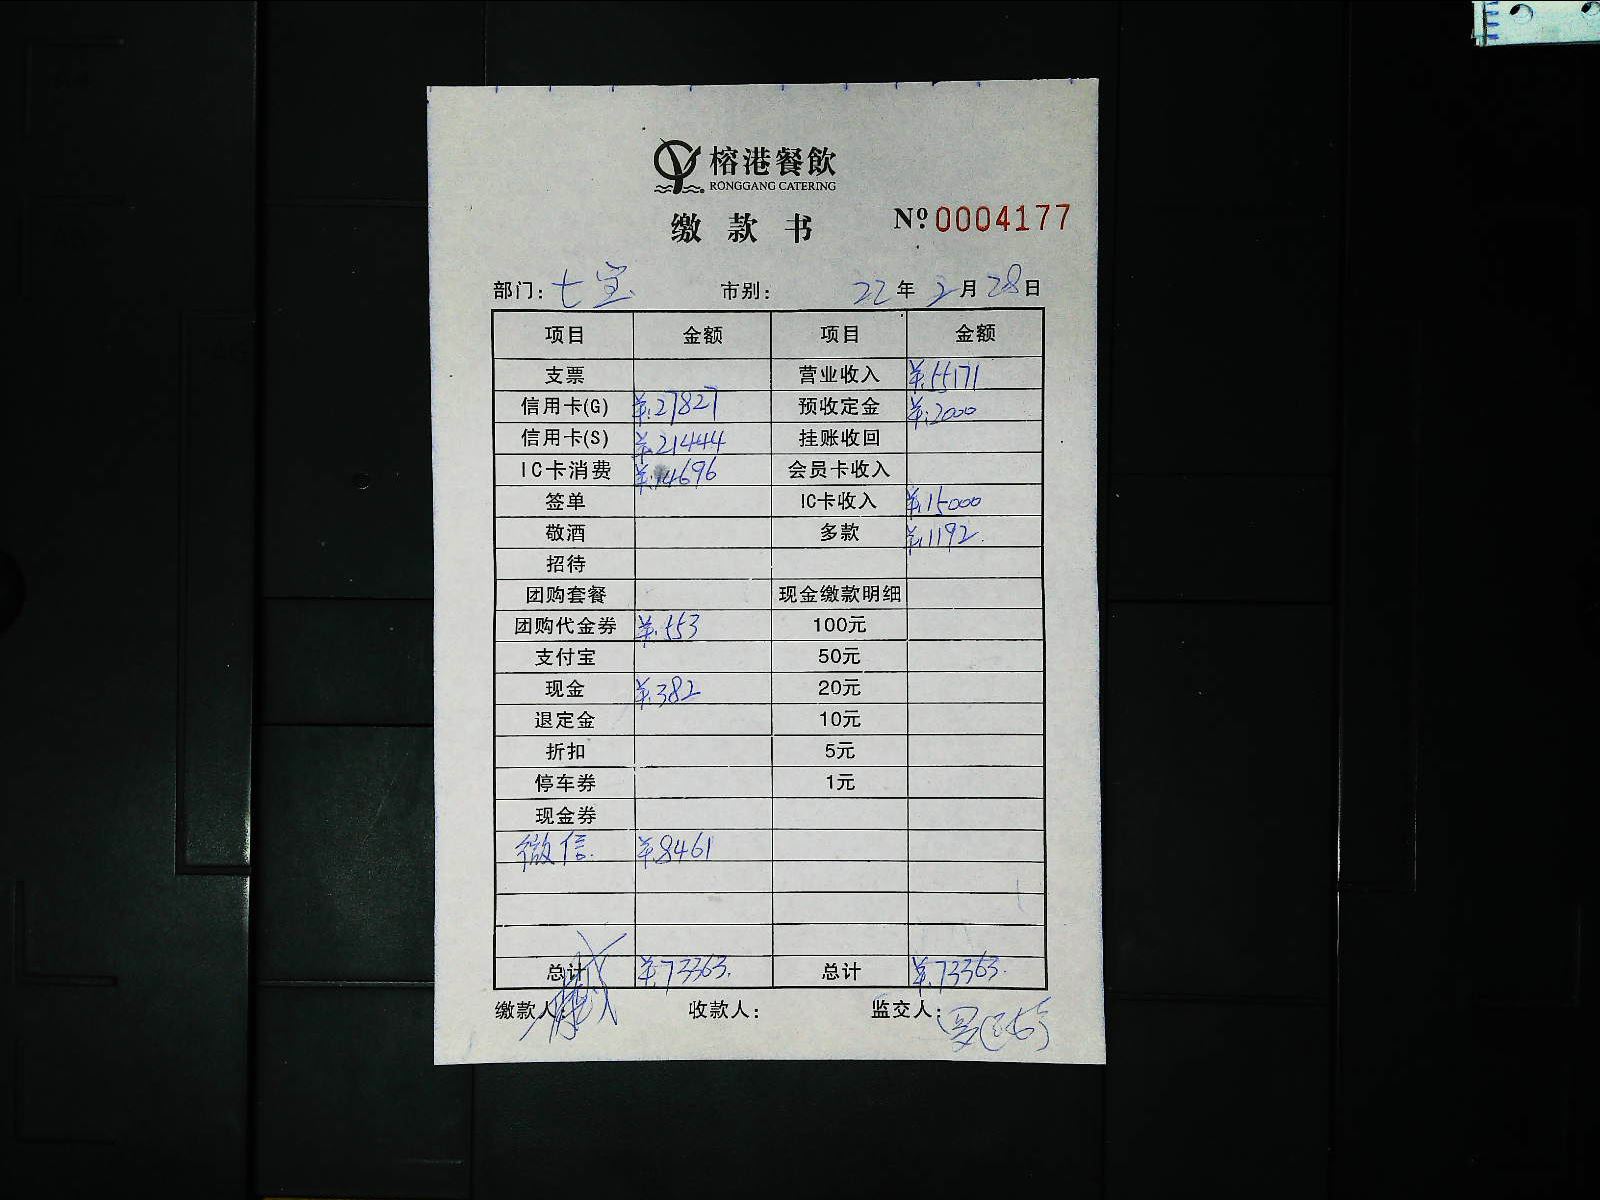 榕港餐飲
RONGGANG CATERING
缴款书
№ 0004177
部门: 七宝 市别: 22年2月28日
项目 金额 项目 金额
支票 营业收入 ¥:55171
信用卡(G) ¥:27827 预收定金 ¥:2000
信用卡(S) ¥:21444 挂账收回
IC卡消费 ¥:14696 会员卡收入
签单 IC卡收入 ¥:15000
敬酒 多款 ¥:1192.
招待
团购套餐 现金缴款明细
团购代金券 ¥:553 100元
支付宝 50元
现金 ¥:382 20元
退定金 10元
折扣 5元
停车券 1元
现金券
微信. ¥:8461
总计 ¥:73363. 总计 ¥:73363.
缴款人: 收款人: 监交人: